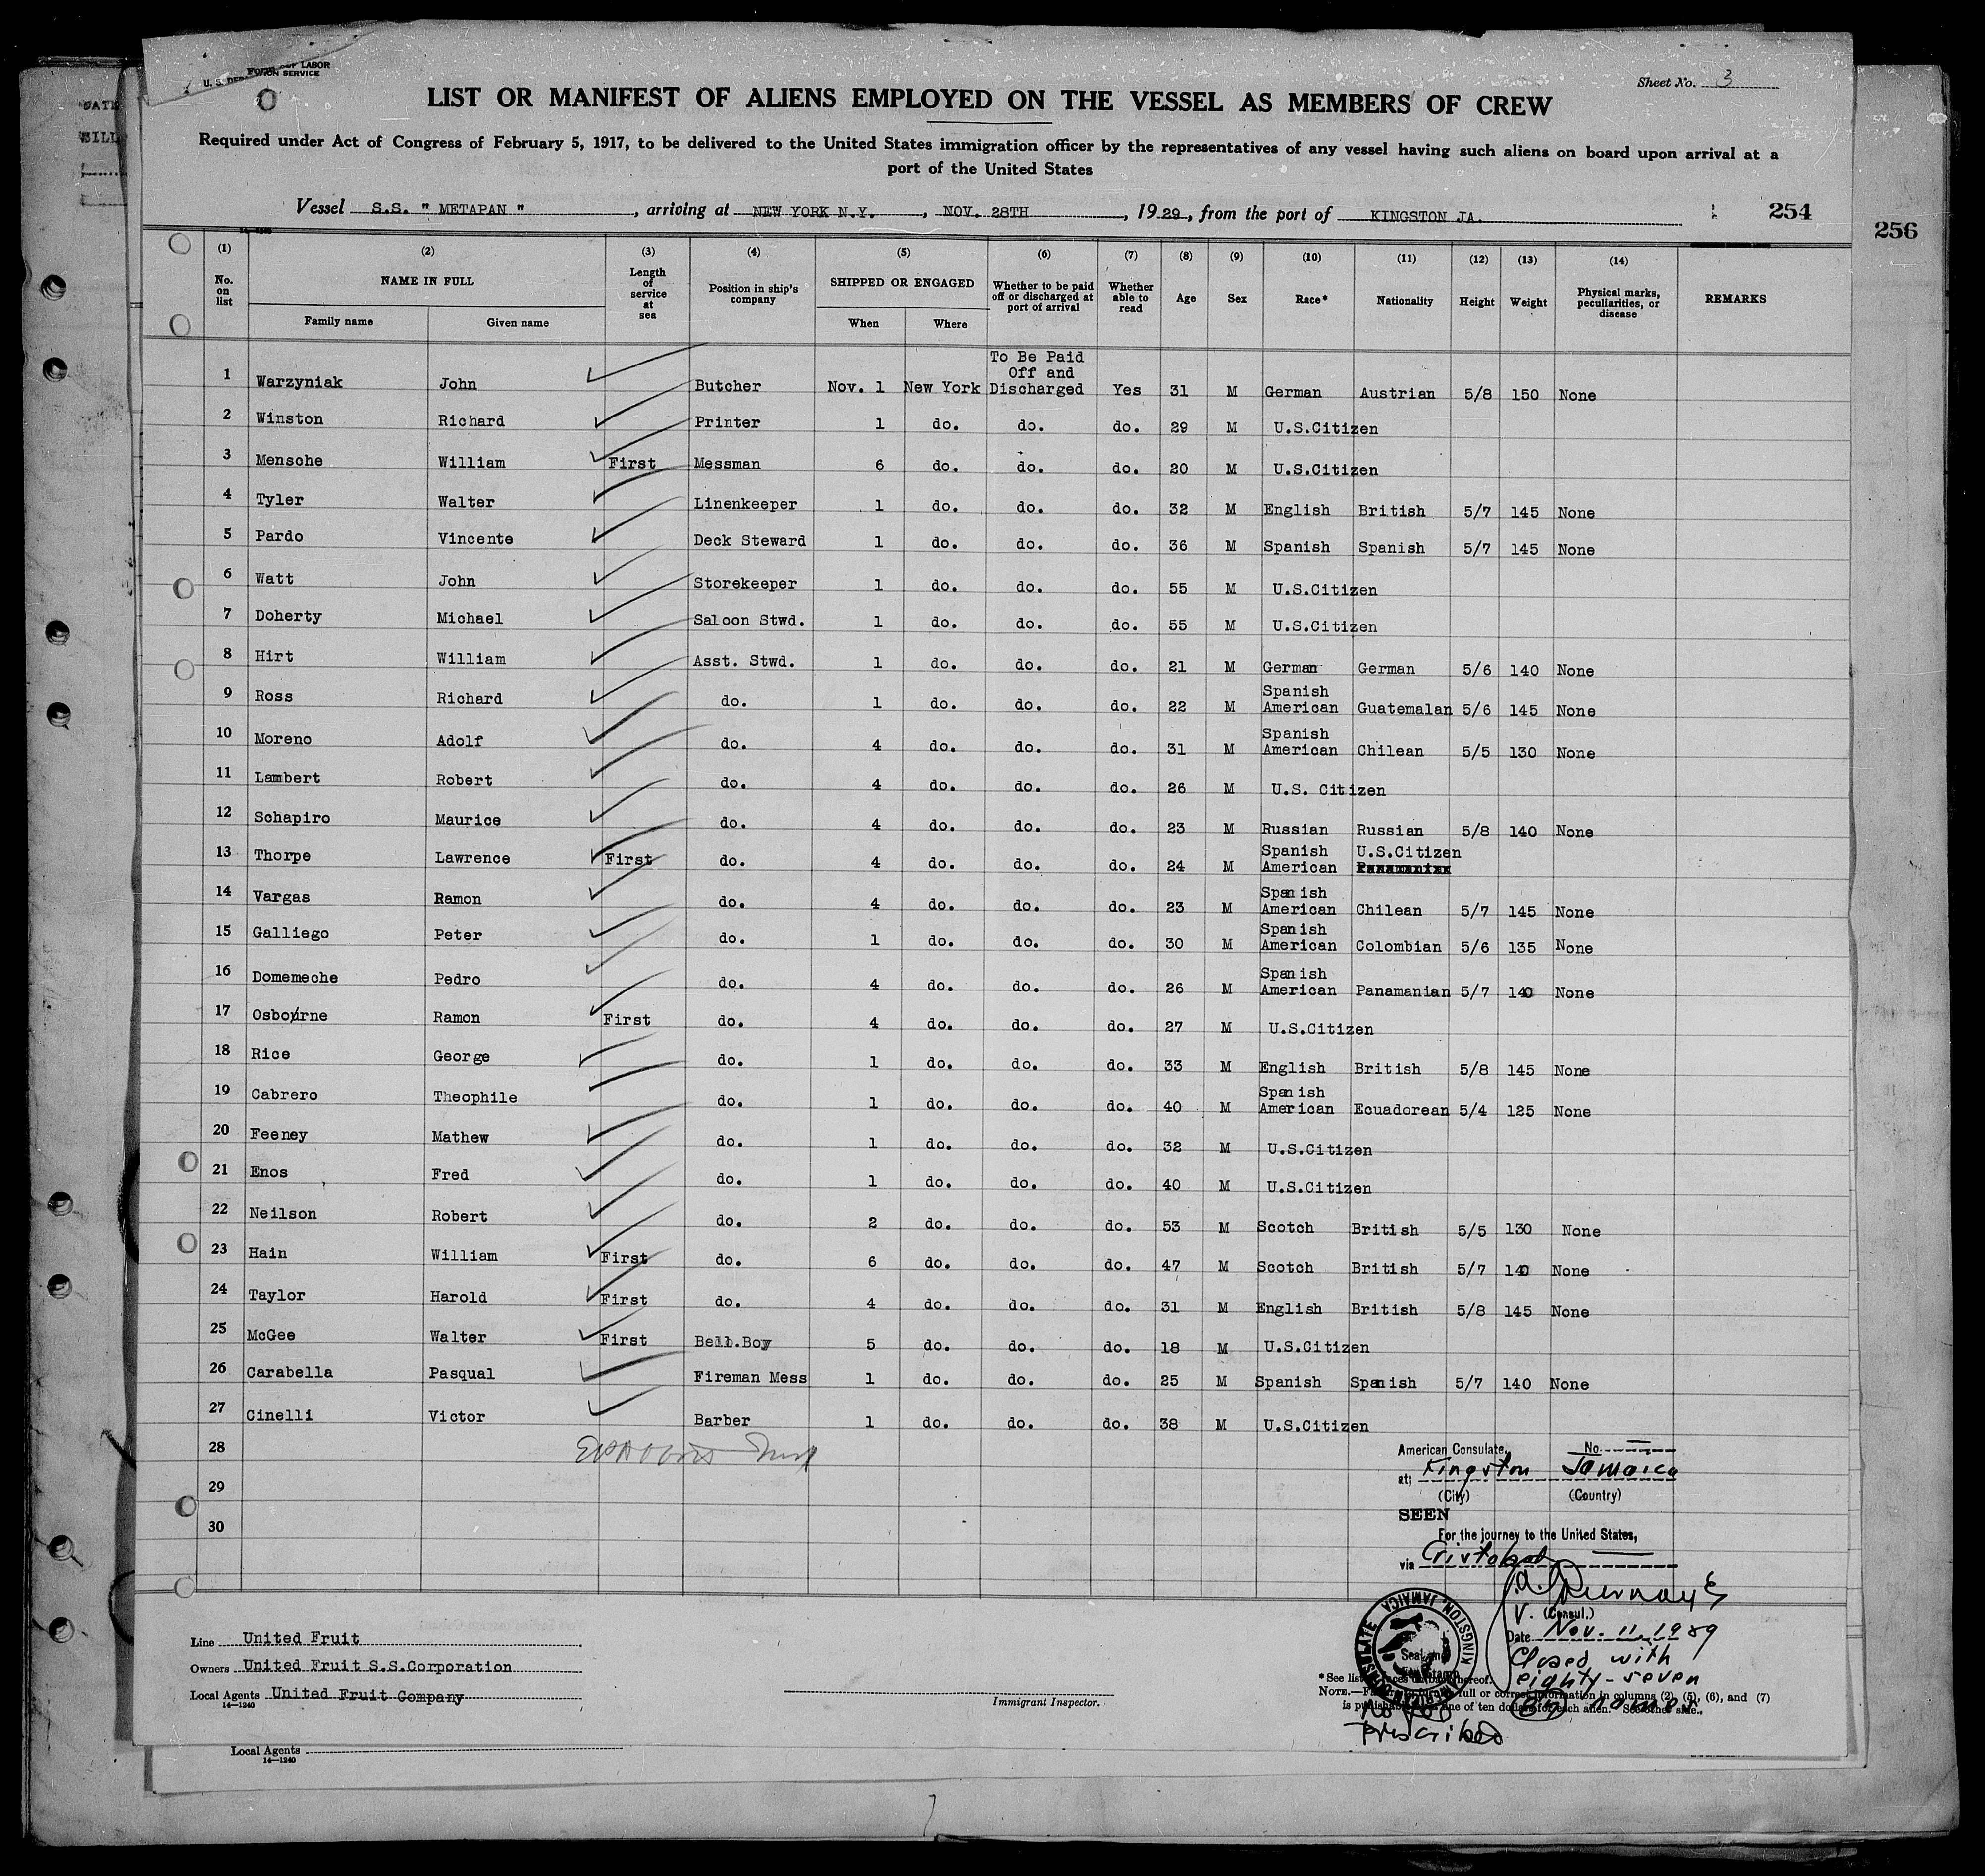 U. S. DEP OF LABOR
ION SERVICE
Sheet No. 3
LIST OR MANIFEST OF ALIENS EMPLOYED ON THE VESSEL AS MEMBERS OF CREW
Required under Act of Congress of February 5, 1917, to be delivered to the United States immigration officer by the representatives of any vessel having such aliens on board upon arrival at a
port of the United States
Vessel S.S. " METAPAN ", arriving at NEW YORK N.Y., NOV. 28TH, 1929, from the port of KINGSTON JA.
254
256
(1) (2) (3) (4) (5) (6) (7) (8) (9) (10) (11) (12) (13) (14)
No. on list NAME IN FULL Length of service at sea Position in ship's company SHIPPED OR ENGAGED Whether to be paid off or discharged at port of arrival Whether able to read Age Sex Race* Nationality Height Weight Physical marks, peculiarities, or disease REMARKS
Family name Given name When Where
1 Warzyniak John Butcher Nov. 1 New York To Be Paid Off and Discharged Yes 31 M German Austrian 5/8 150 None
2 Winston Richard Printer 1 do. do. do. 29 M U.S.Citizen
3 Mensche William First Messman 6 do. do. do. 20 M U.S.Citizen
4 Tyler Walter Linenkeeper 1 do. do. do. 32 M English British 5/7 145 None
5 Pardo Vincente Deck Steward 1 do. do. do. 36 M Spanish Spanish 5/7 145 None
6 Watt John Storekeeper 1 do. do. do. 55 M U.S.Citizen
7 Doherty Michael Saloon Stwd. 1 do. do. do. 55 M U.S.Citizen
8 Hirt William Asst. Stwd. 1 do. do. do. 21 M German German 5/6 140 None
9 Ross Richard do. 1 do. do. do. 22 M Spanish American Guatemalan 5/6 145 None
10 Moreno Adolf do. 4 do. do. do. 31 M Spanish American Chilean 5/5 130 None
11 Lambert Robert do. 4 do. do. do. 26 M U.S. Citizen
12 Schapiro Maurice do. 4 do. do. do. 23 M Russian Russian 5/8 140 None
13 Thorpe Lawrence First do. 4 do. do. do. 24 M Spanish American U.S.Citizen Panamanian
14 Vargas Ramon do. 4 do. do. do. 23 M Spanish American Chilean 5/7 145 None
15 Galliego Peter do. 1 do. do. do. 30 M Spanish American Colombian 5/6 135 None
16 Domemeche Pedro do. 4 do. do. do. 26 M Spanish American Panamanian 5/7 140 None
17 Osbourne Ramon First do. 4 do. do. do. 27 M U.S.Citizen
18 Rice George do. 1 do. do. do. 33 M English British 5/8 145 None
19 Cabrero Theophile do. 1 do. do. do. 40 M Spanish American Ecuadorean 5/4 125 None
20 Feeney Mathew do. 1 do. do. do. 32 M U.S.Citizen
21 Enos Fred do. 1 do. do. do. 40 M U.S.Citizen
22 Neilson Robert do. 2 do. do. do. 53 M Scotch British 5/5 130 None
23 Hain William First do. 6 do. do. do. 47 M Scotch British 5/7 140 None
24 Taylor Harold First do. 4 do. do. do. 31 M English British 5/8 145 None
25 McGee Walter First Bell.Boy 5 do. do. do. 18 M U.S.Citizen
26 Carabella Pasqual Fireman Mess 1 do. do. do. 25 M Spanish Spanish 5/7 140 None
27 Cinelli Victor Barber 1 do. do. do. 38 M U.S.Citizen
28
29
30
American Consulate, No.
at; Kingston Jamaica
(City) (Country)
SEEN
For the journey to the United States,
via Cristobal
V. (Consul.)
Date Nov. 11, 1929
Closed with
eighty-seven
(87) names.
No fee
prescribed
AMERICAN CONSULATE KINGSTON JAMAICA
Line United Fruit
Owners United Fruit S.S.Corporation
Local Agents United Fruit Company
14—1240
Immigrant Inspector.
*See list of races on back hereof.
NOTE.—F full or correct information in columns (2), (5), (6), and (7)
is punishable fine of ten dollars for each alien. See other side.
Local Agents
14—1240